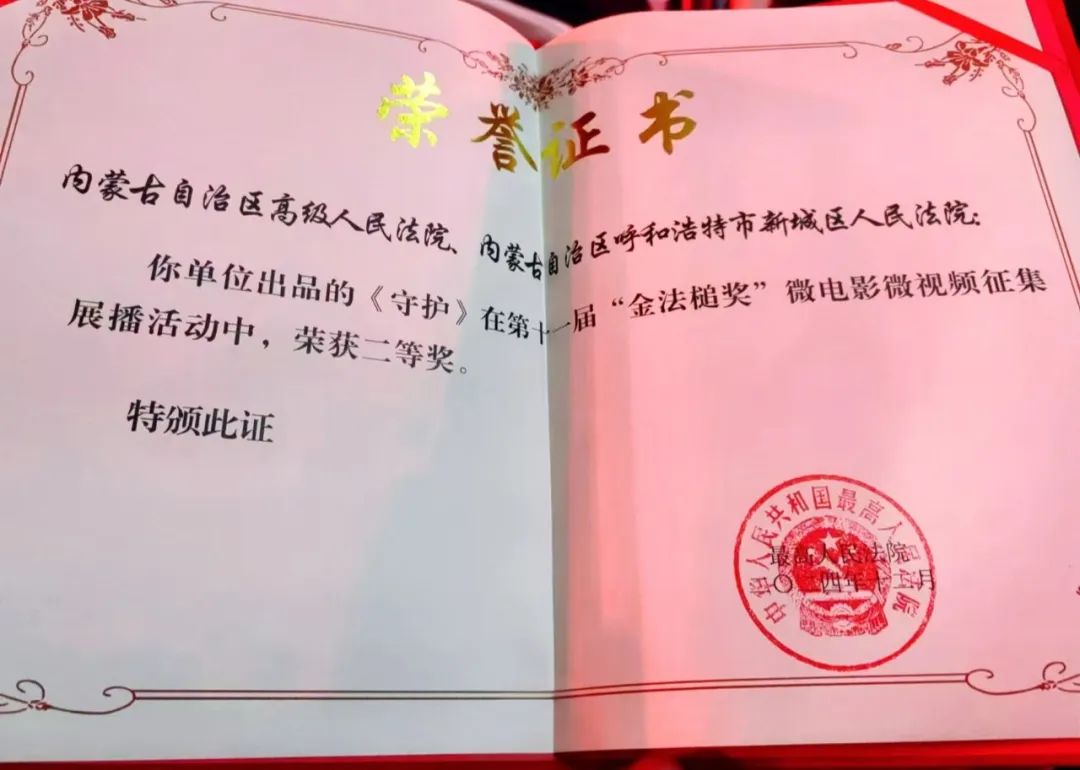 荣誉证书
内蒙古自治区高级人民法院、内蒙古自治区呼和浩特市新城区人民法院:
你单位出品的《守护》在第十一届“金法槌奖”微电影微视频征集
展播活动中,荣获二等奖。
特颁此证
中华人民共和国最高人民法院
最高人民法院
四年十 月